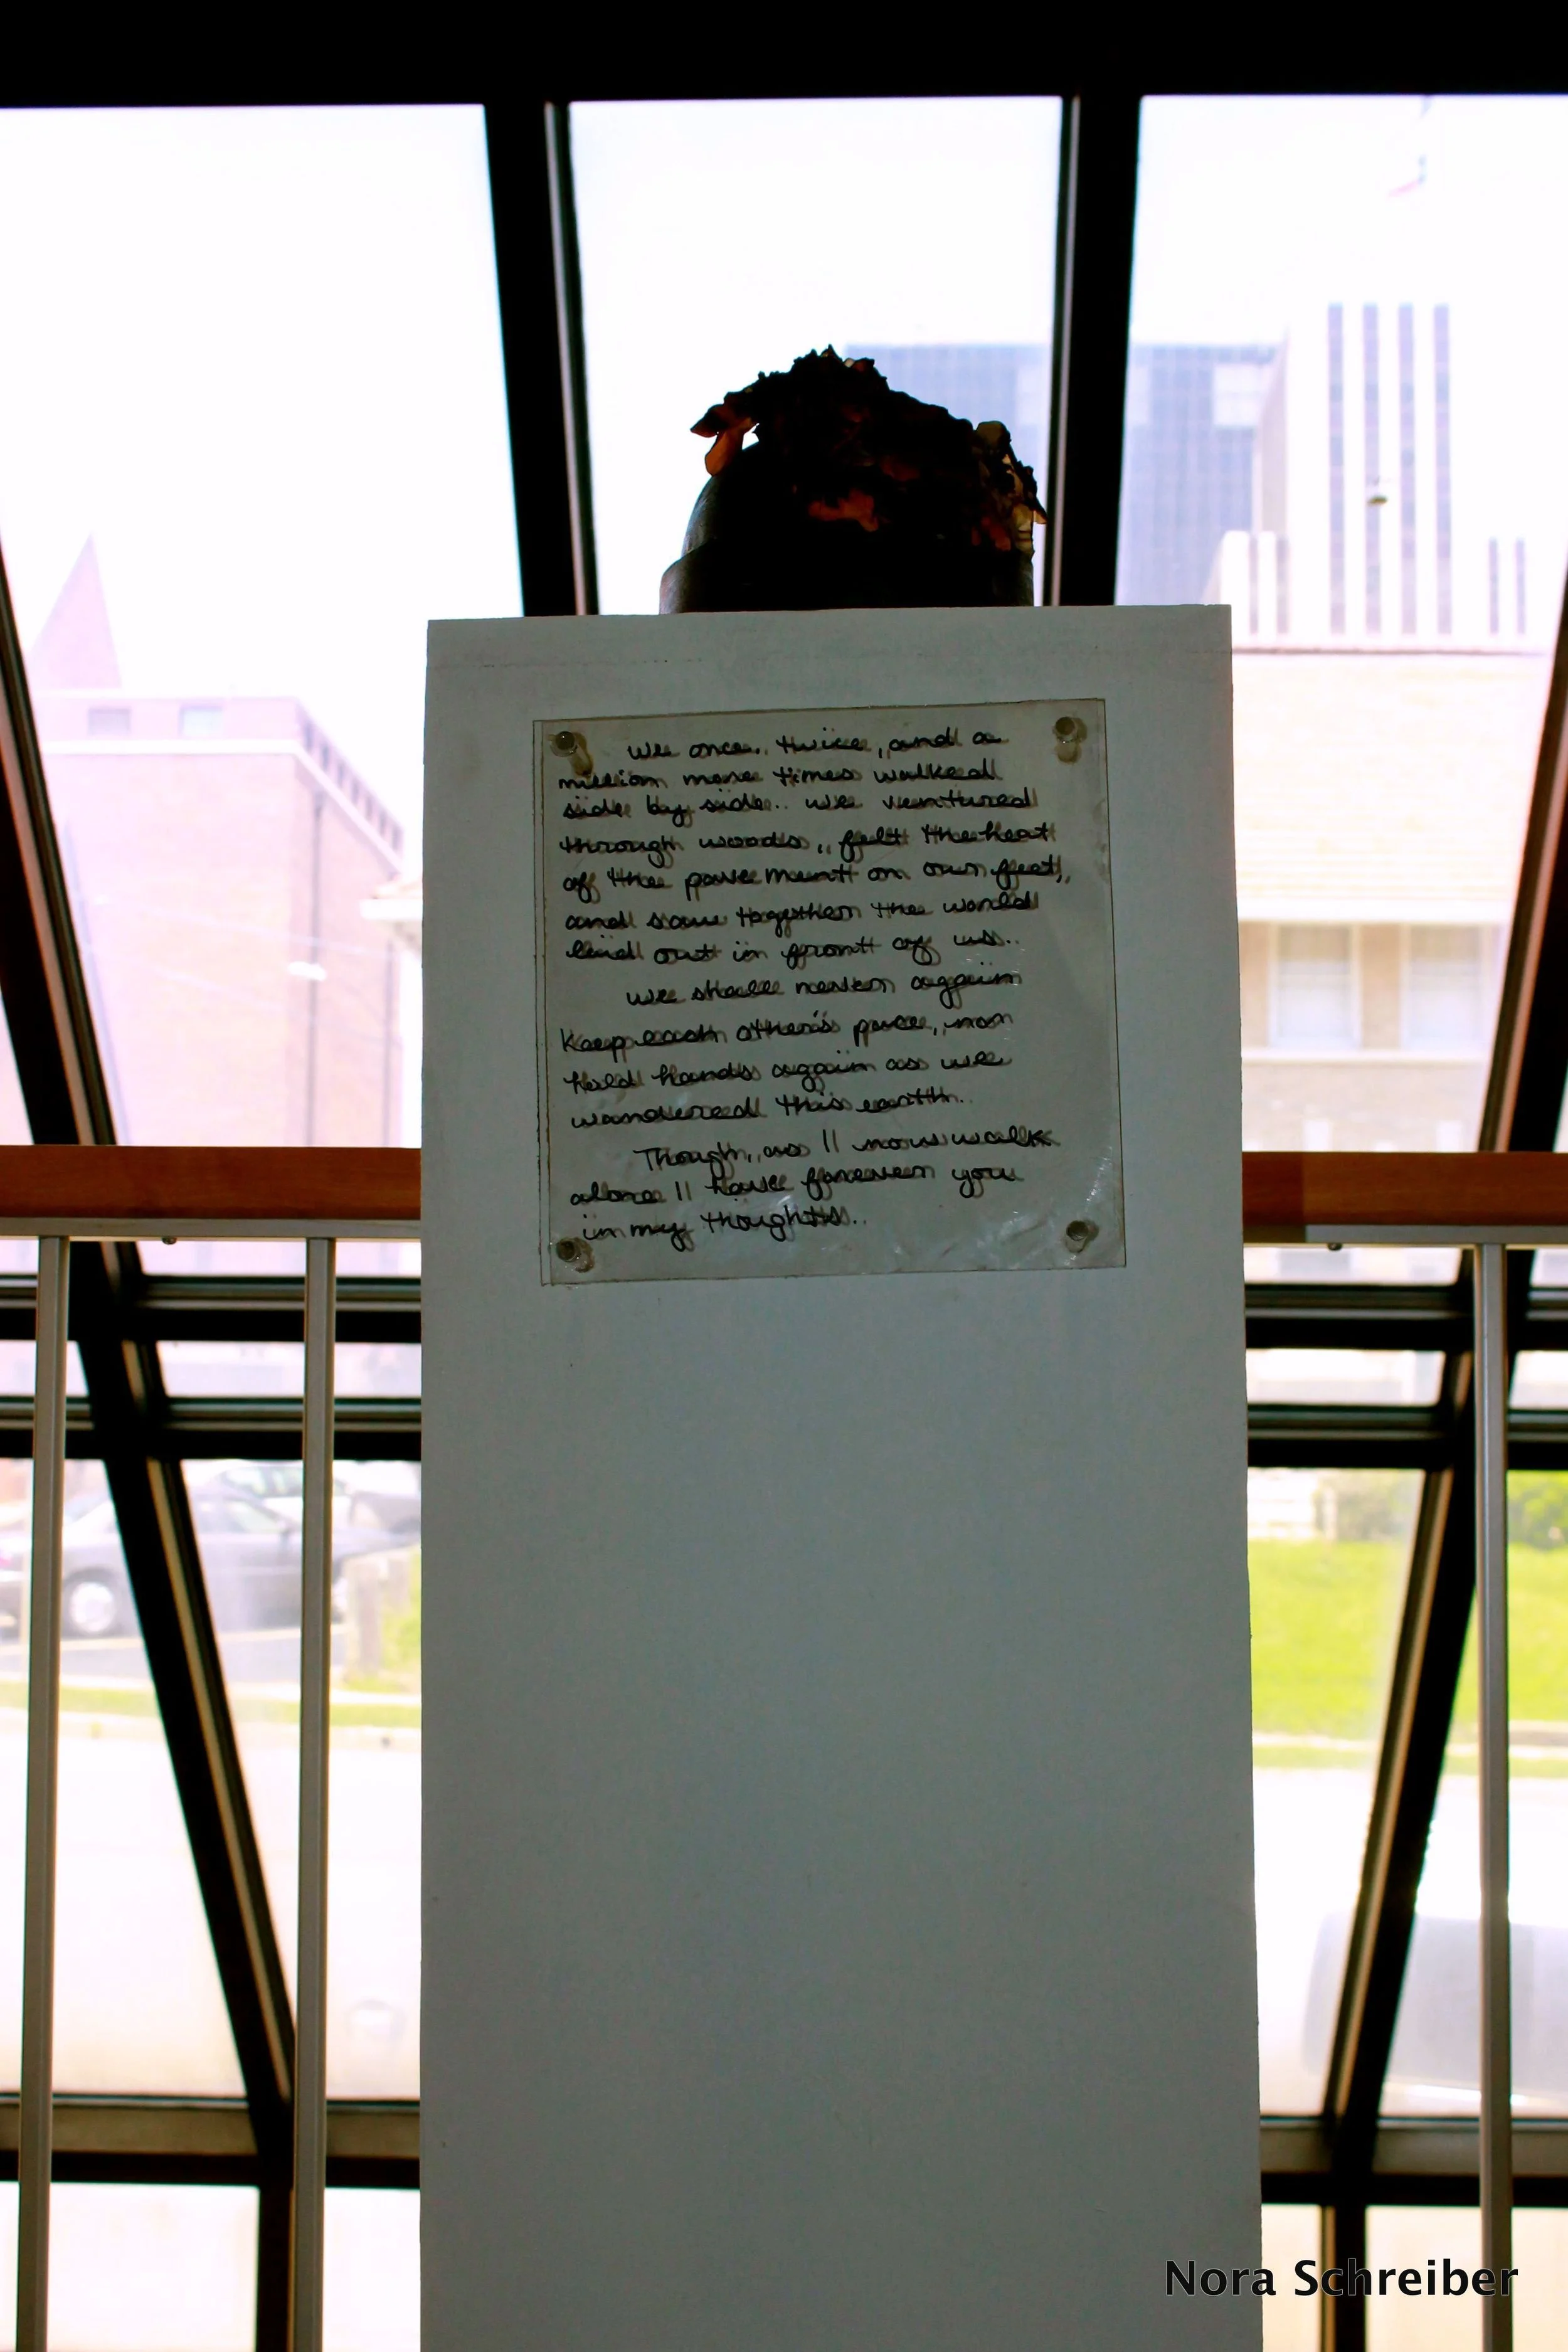 We once, twice, and a
million more times walked
side by side. We ventured
through woods, felt the heat
of the pavement on our feet,
and saw together the world
laid out in front of us.
We shall never again
Keep each other's pace, nor
hold hands again as we
wandered this earth.
Though, as I now walk
alone I have forever you
in my thoughts.
Nora Schreiber